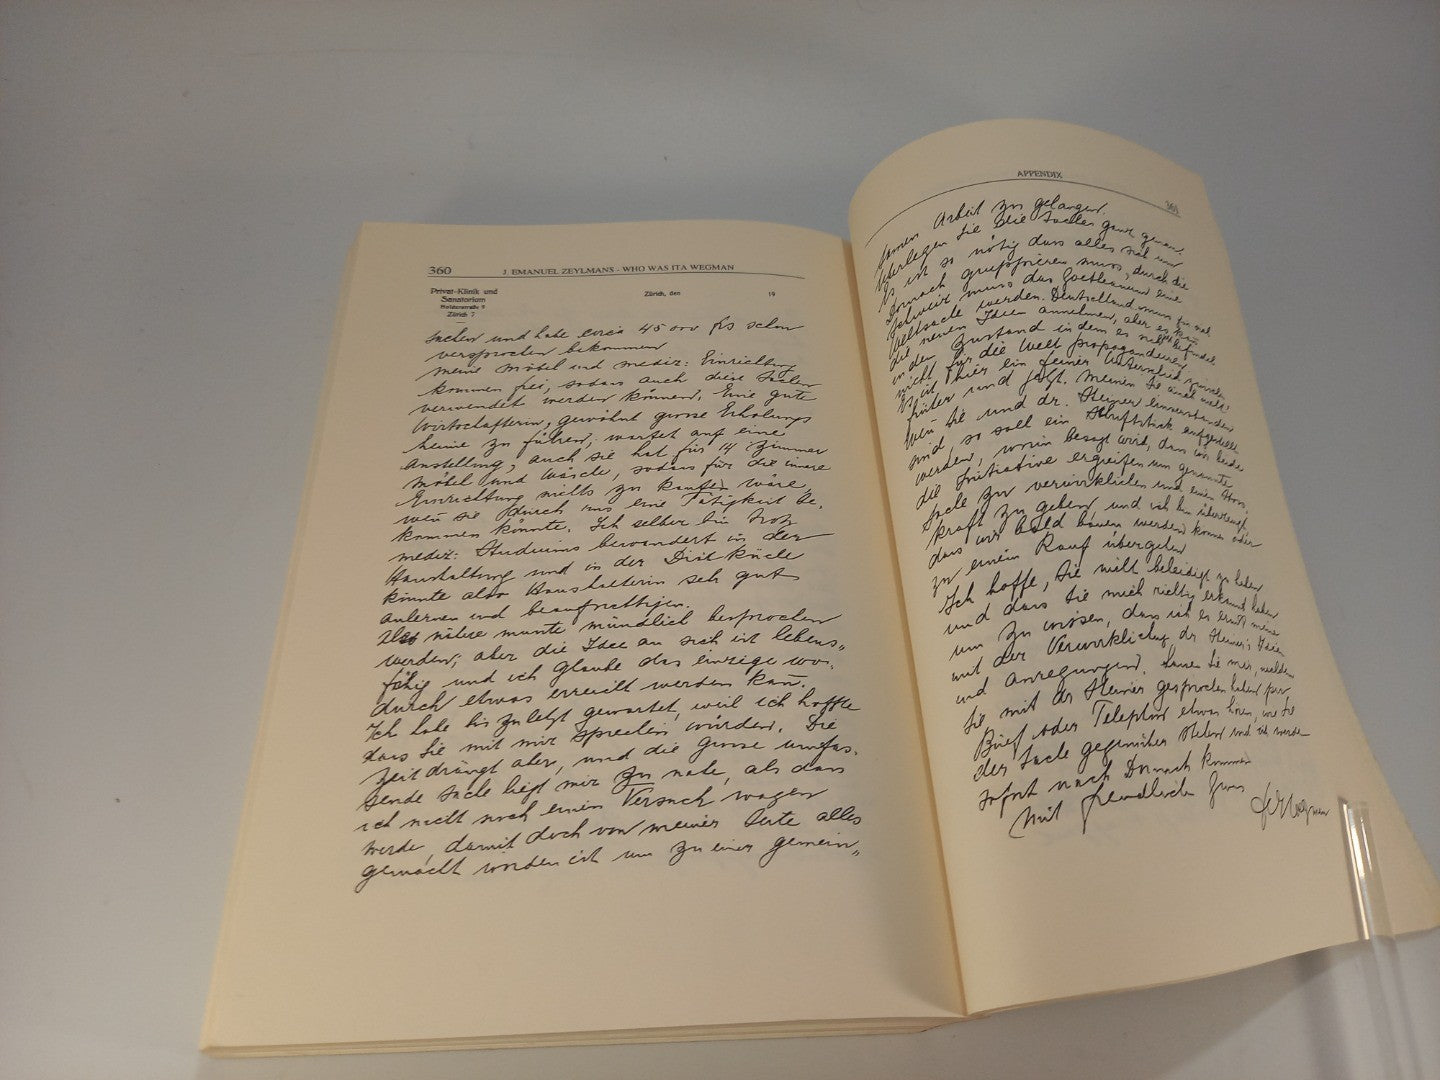 360 J. EMANUEL ZEYLMANS - WHO WAS ITA WEGMAN
Privat-Klinik und
Sanatorium
Zürich 7
Zürich, den 19
suchen und habe circa 45000 frs schon
versprochen bekommen
meine Möbel und mediz: Einrichtung
kommen frei, sodass auch diese
verwendet werden können. Eine gute
Wirtschafterin, gewöhnt grosse Erholungs
heime zu führen, wartet auf eine
Anstellung, auch sie hat für 14 Zimmer
Möbel und Wäsche, sodass für die innere
Einrichtung nichts zu kaufen wäre,
wen sie durch uns eine Tätigkeit be„
kommen könnte. Ich selber bin trotz
mediz: Studiums bewandert in der
Haushaltung und in der Diätküche
könnte also Haushalterin sehr gut
anlernen und beaufsichtigen.
nähere müsste mündlich besprochen
werden, aber die Idee an sich ist lebens„
fähig und ich glaube das einzige wo„
durch etwas erreicht werden kan.
Ich habe bis zuletzt gewartet, weil ich hoffte
dass Sie mit mir sprechen würden. Die
Zeit drängt aber, und die grosse umfas„
sende Sache liegt mir zu nahe, als dass
ich nicht noch einen Versuch wagen
werde, damit doch von meiner Seite alles
gemacht worden ist um zu einer gemein„
APPENDIX 361
samen Arbeit zu gelangen.
Überlegen Sie die Sache ganz genau.
Es ist so nötig dass alles sich um
Dornach gruppieren muss, durch die
Schweiz muss das Goetheanum eine
Weltsache werden. Deutschland muss
die neuen Ideen annehmen, aber es
in dem Zustand in dem es sich befindet
nicht für die Welt propagandieren
Es ist hier ein feiner Unterschied zwischen
früher und jetzt. Meinen Sie nicht
Wen Sie und dr. Steiner einverstanden
sind so soll ein Schriftstück aufgestellt
werden, worin besagt wird, dass wir beide
die Initiative ergreifen um genannte
Sache zu verwirklichen und einen
kraft zu geben, und ich bin überzeugt,
dass wir bald bauen werden können oder
zu einem Kauf übergehen
Ich hoffe, Sie nicht beleidigt zu haben
und dass Sie mich richtig erkannt haben
um zu wissen, dass ich es ernst meine
mit der Verwirklichung dr. Steiner's Ideen
und Anregungen. Lassen Sie mir,
Sie mit dr Steiner gesprochen haben per
Brief oder Telephon etwas hören, wie Sie
der Sache gegenüber stehen und ich werde
sofort nach Dornach kommen
Mit freundlichen Gruss
Wegman